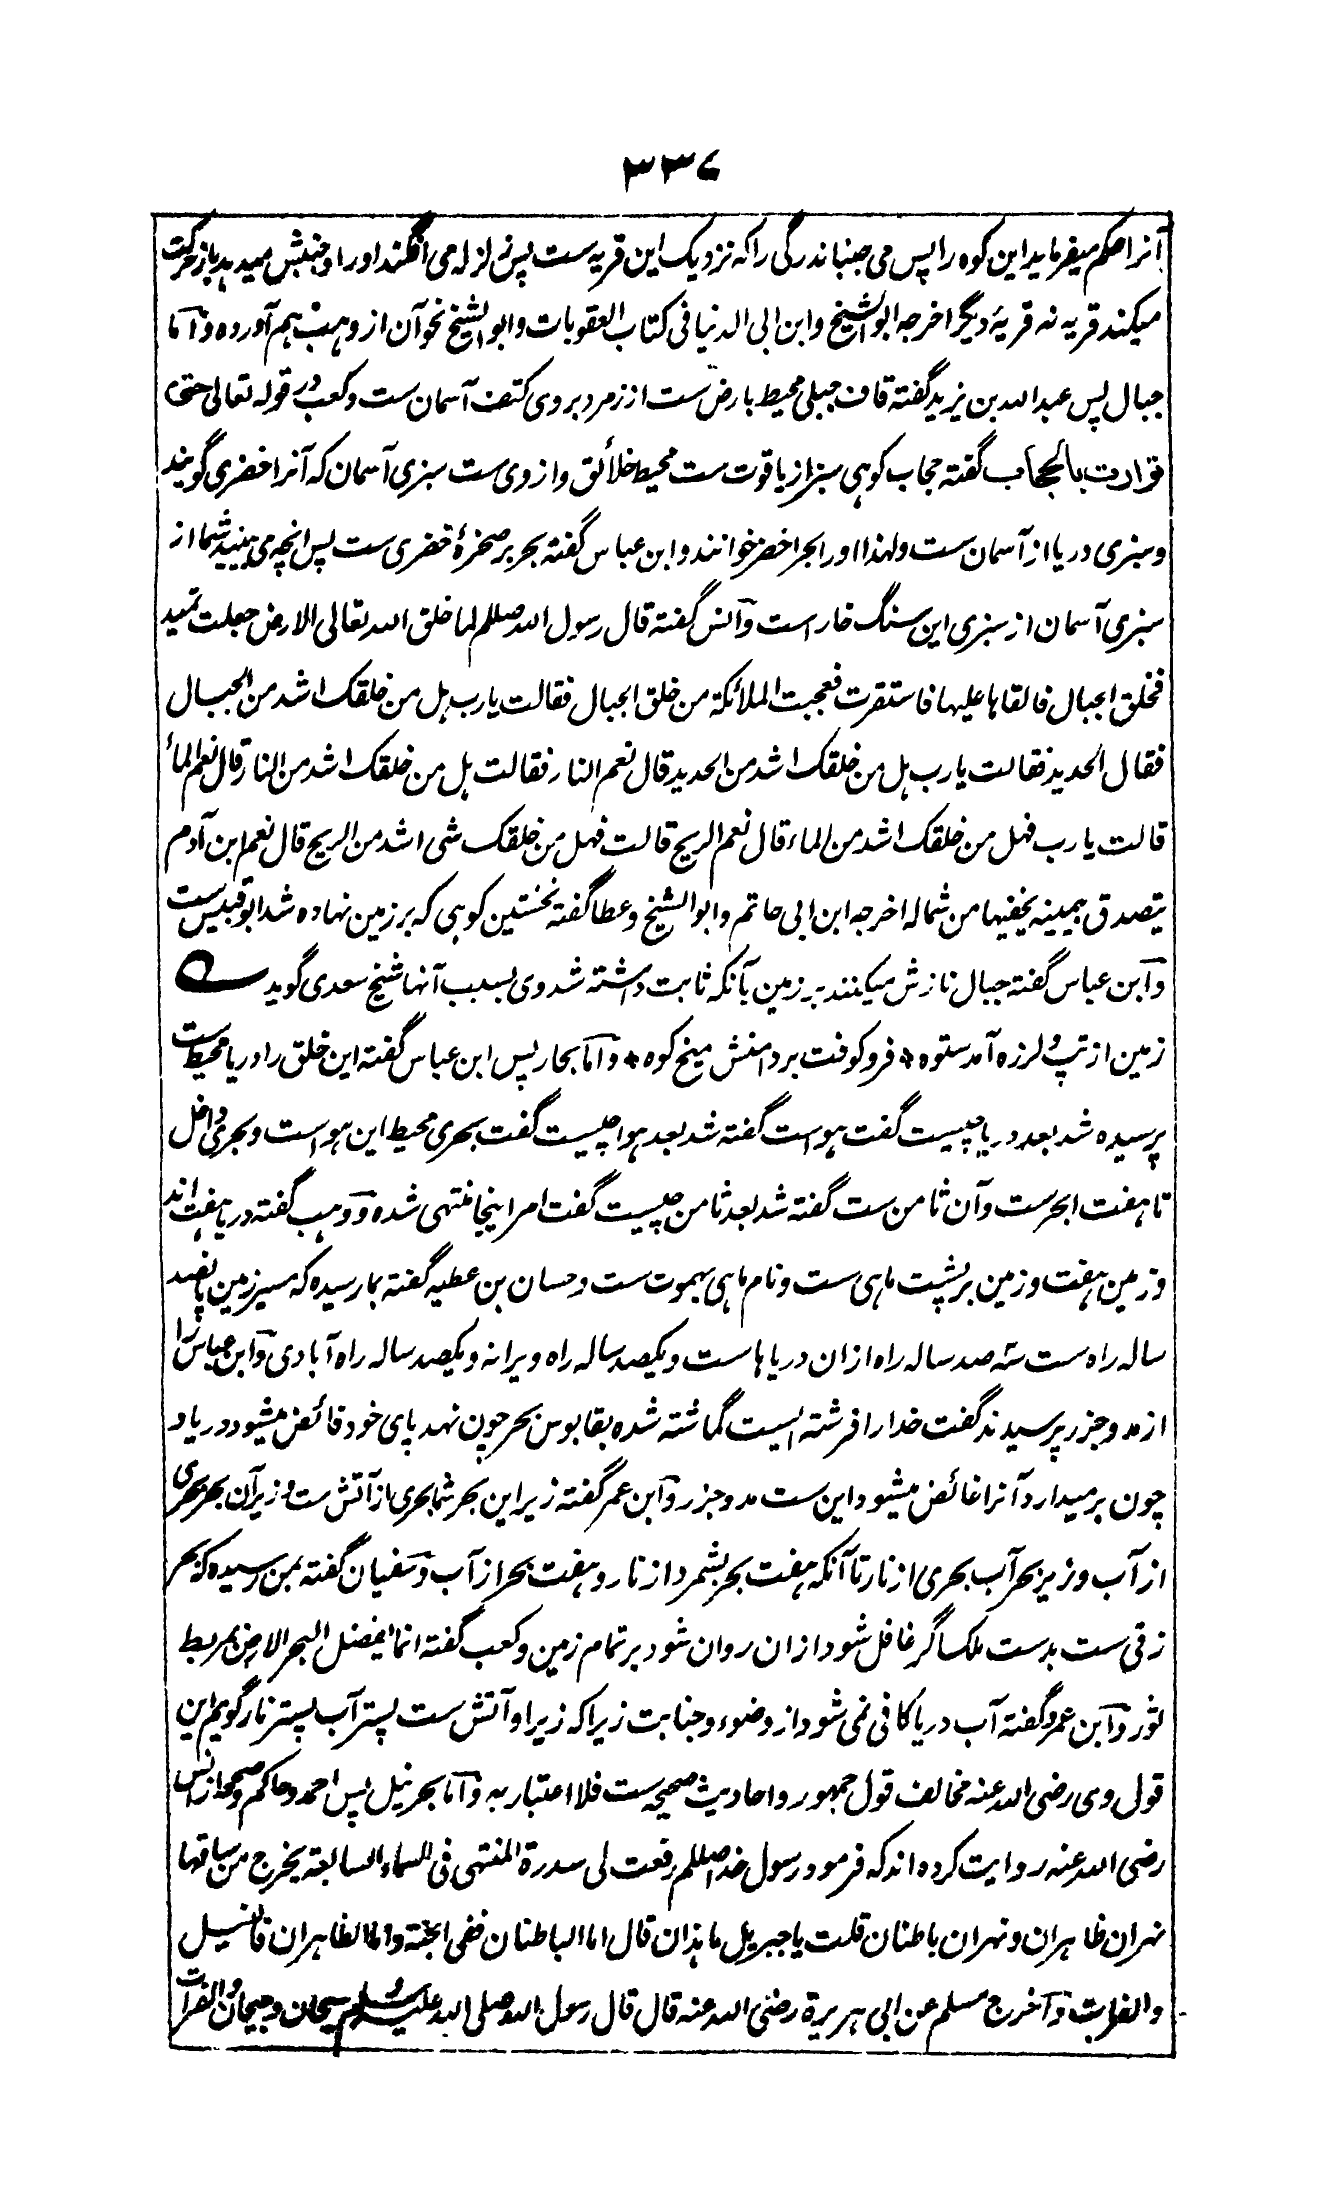 ۳۳۷
آنرا حکم میفرماید این کوه را پس می جنباند رگی را که نزدیک این قریه ست پس زلزله می افگند او را و جنبش میدهد باز حرکت
میکند قریه نه قریهٔ دیگر اخرجه ابو الشیخ وابن ابی الدنیا فی کتاب العقوبات وابو الشیخ نحو آن از وهب هم آورده و اما
جبال پس عبد الله بن یزید گفته قاف جبلی محیط بارض ست از زمرد بروی کتف آسمان ست و کعب در قوله تعالی حتی
توارت بالحجاب گفته حجاب کوهی سبز از یاقوت ست محیط خلائق و از وی ست سبزی آسمان که آنرا خضری گویند
و سبزی دریا از آسمان ست و لهذا او را بحر اخضر خوانند و ابن عباس گفته بحر بر صخرهٔ خضری ست پس انچه می بینید شما از
سبزی آسمان از سبزی این سنگ خارا ست و انس گفته قال رسول الله صللم لما خلق الله تعالی الارض جعلت تمید
فخلق الجبال فالقاها علیها فاستقرت فعجبت الملائکة من خلق الجبال فقالت یا رب هل من خلقک اشد من الجبال
فقال الحدید فقالت یا رب هل من خلقک اشد من الحدید قال نعم النار فقالت هل من خلقک اشد من النار قال نعم الماء
قالت یا رب فهل من خلقک اشد من الماء قال نعم الریح قالت فهل من خلقک شی اشد من الریح قال نعم ابن آدم
یتصدق بیمینه یخفیها من شماله اخرجه ابن ابی حاتم و ابو الشیخ و عطا گفته نخستین کوهی که بر زمین نهاده شد ابو قبیس ست
و ابن عباس گفته جبال نازش میکنند بر زمین بآنکه ثابت داشته شد وی بسبب آنها شیخ سعدی گوید
زمین از تپ و لرزه آمد ستوه * فرو کوفت بر دامنش میخ کوه * و اما بحار پس ابن عباس گفته این خلق را دریا محیط ست
پرسیده شد بعد دریا چیست گفت هواست گفته شد بعد هوا چیست گفت بحری محیط این هواست و بحری داخل
تا هفت ابحرست و آن ثامن ست گفته شد بعد ثامن چیست گفت امر اینجا منتهی شده و وهب گفته دریا هفت اند
و زمین هفت و زمین بر پشت ماهی ست و نام ماهی بهموت ست و حسان بن عطیه گفته بما رسیده که مسیر زمین پانصد
ساله راه ست سه صد ساله راه ازان دریاهاست و یکصد ساله راه ویرانه و یکصد ساله راه آبادی و ابن عباس را
از مد و جزر پرسیدند گفت خدا را فرشته ایست گماشته شده بقابوس بحر چون نهد پای خود فائض میشود دریا و
چون بر میدارد آنرا غائض میشود این ست مد و جزر و ابن عمر گفته زیر این بحر شما بحری از آتش ست و زیر آن بحر بحری
از آب و زیر بحر آب بحری از نار تا آنکه هفت بحر بشمرد از نار و هفت بحر از آب و سفیان گفته بمن رسیده که بحر
زقی ست بدست ملک اگر غافل شود ازان روان شود بر تمام زمین و کعب گفته انما یفضل البحر الارض بمربط
ثور و ابن عمرو گفته آب دریا کافی نمی شود از وضوء و جنابت زیرا که زیر او آتش ست پستر آب پستر نار گویم این
قول وی رضی الله عنه مخالف قول جمهور و احادیث صحیحه ست فلا اعتبار به و اما بحر نیل پس احمد و حاکم و صححه از انس
رضی الله عنه روایت کرده اند که فرمود رسول خدا صللم رفعت لی سدرة المنتهی فی السماء السابعة یخرج من ساقها
نهران ظاهران و نهران باطنان قلت یا جبریل ما هذان قال اما الباطنان ففی الجنة و اما الظاهران فالنیل
والفرات و اخرج مسلم عن ابی هریرة رضی الله عنه قال قال رسول الله صلی الله علیه وسلم سیحان و جیحان و الفرات